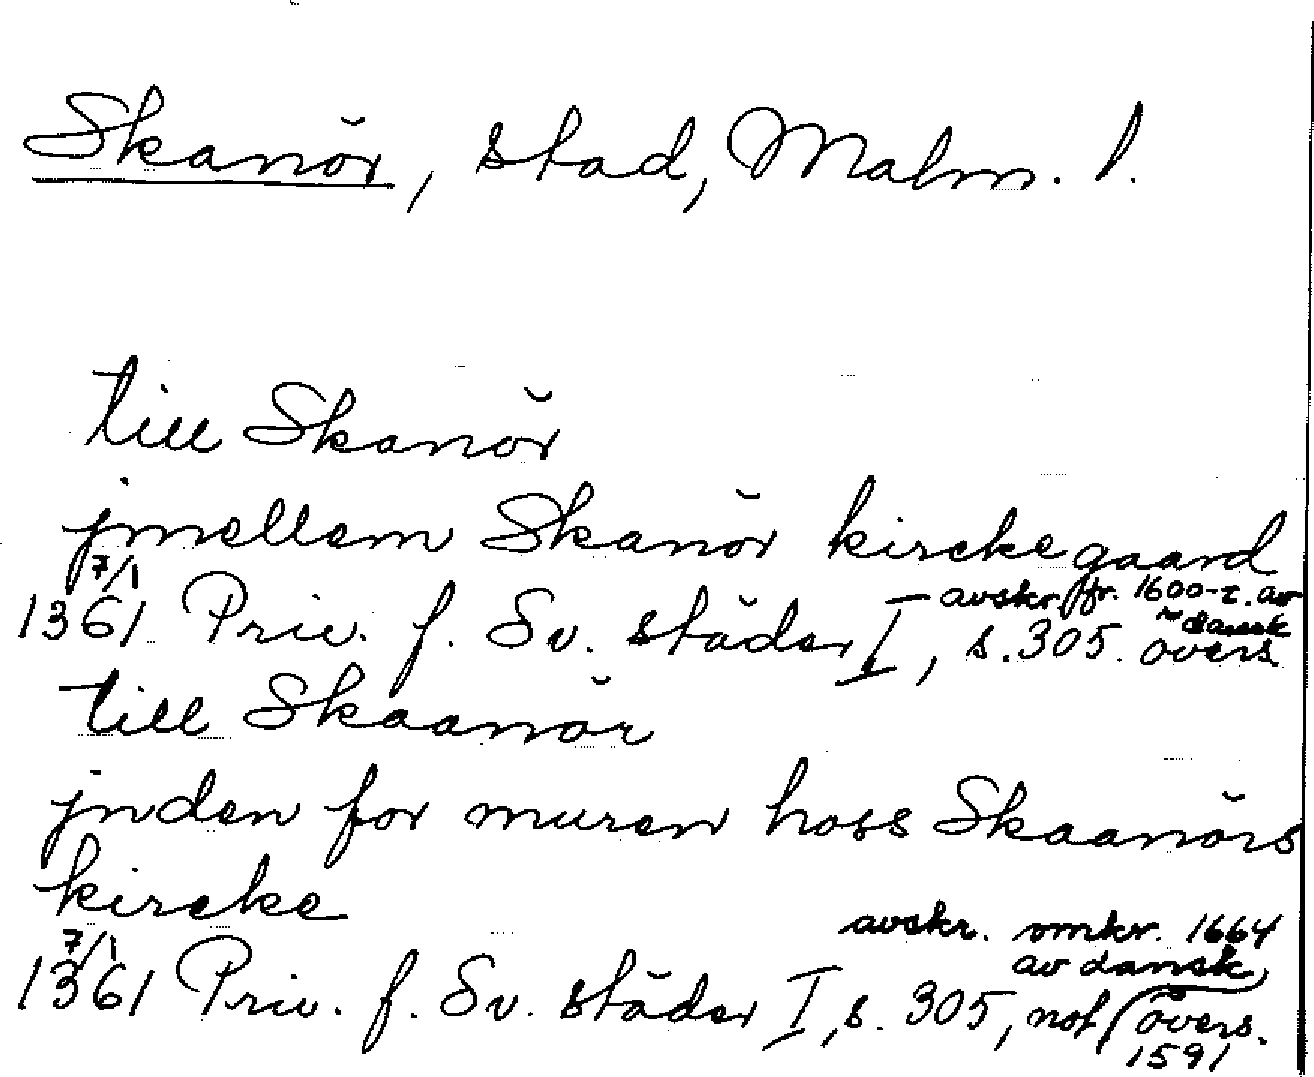 Skanör, stad, Malm. l.
till Skanör
jmellem Skanör kirckegaard
7/1
1361 Priv. f. Sv. städer I, s. 305. avskr. fr. 1600-t. av dansk övers.
till Skaanör
jnden for muren hoss Skaanörs
kircke
7/1
1361 Priv. f. Sv. städer I, s. 305, not avskr. omkr. 1664
av dansk
övers.
1591